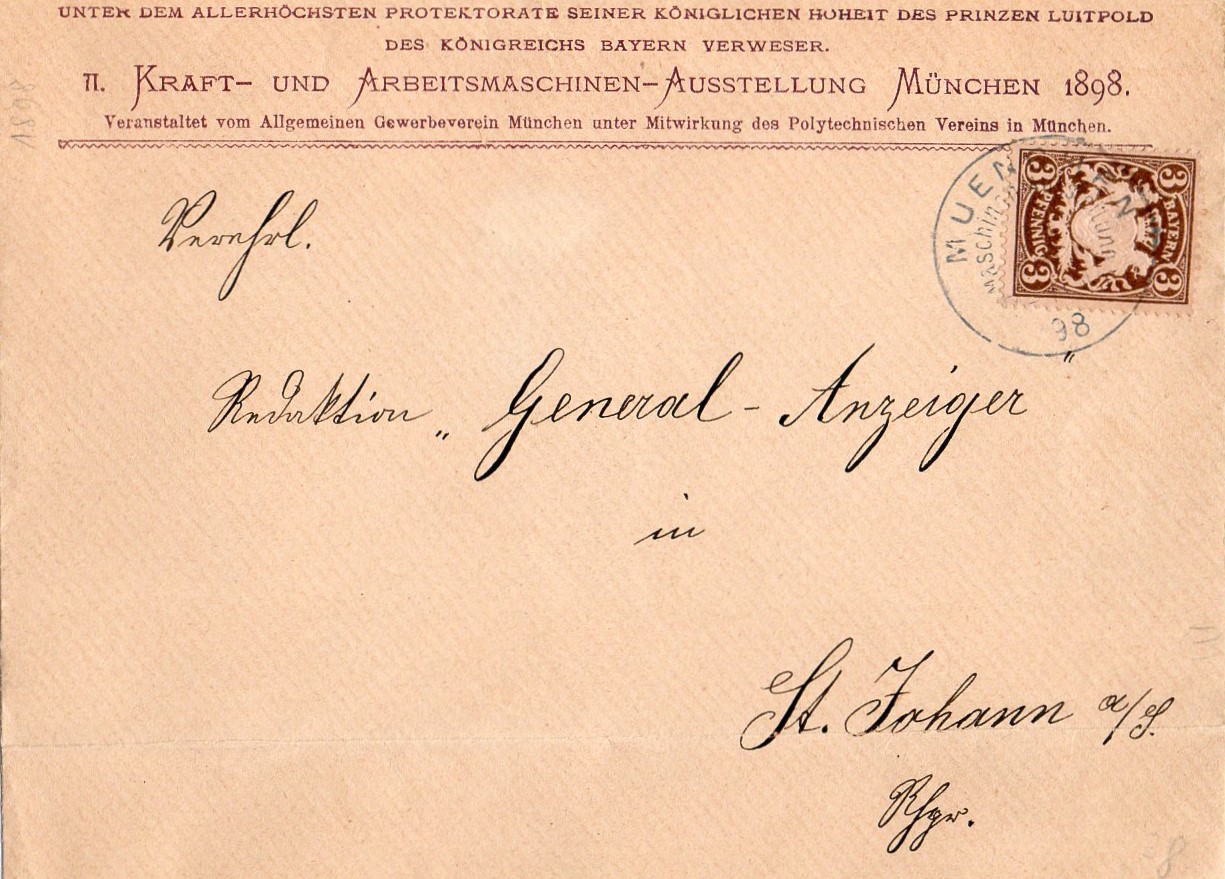 UNTER DEM ALLERHÖCHSTEN PROTEKTORATE SEINER KÖNIGLICHEN HOHEIT DES PRINZEN LUITPOLD
DES KÖNIGREICHS BAYERN VERWESER.
II. KRAFT- UND ARBEITSMASCHINEN-AUSSTELLUNG MÜNCHEN 1898.
Veranstaltet vom Allgemeinen Gewerbeverein München unter Mitwirkung des Polytechnischen Vereins in München.
1898
3 3
PFENNIG BAYERN
3 3
98
Verehrl.
Redaktion „General-Anzeiger"
in
St. Johann a/S.
Rhpr.